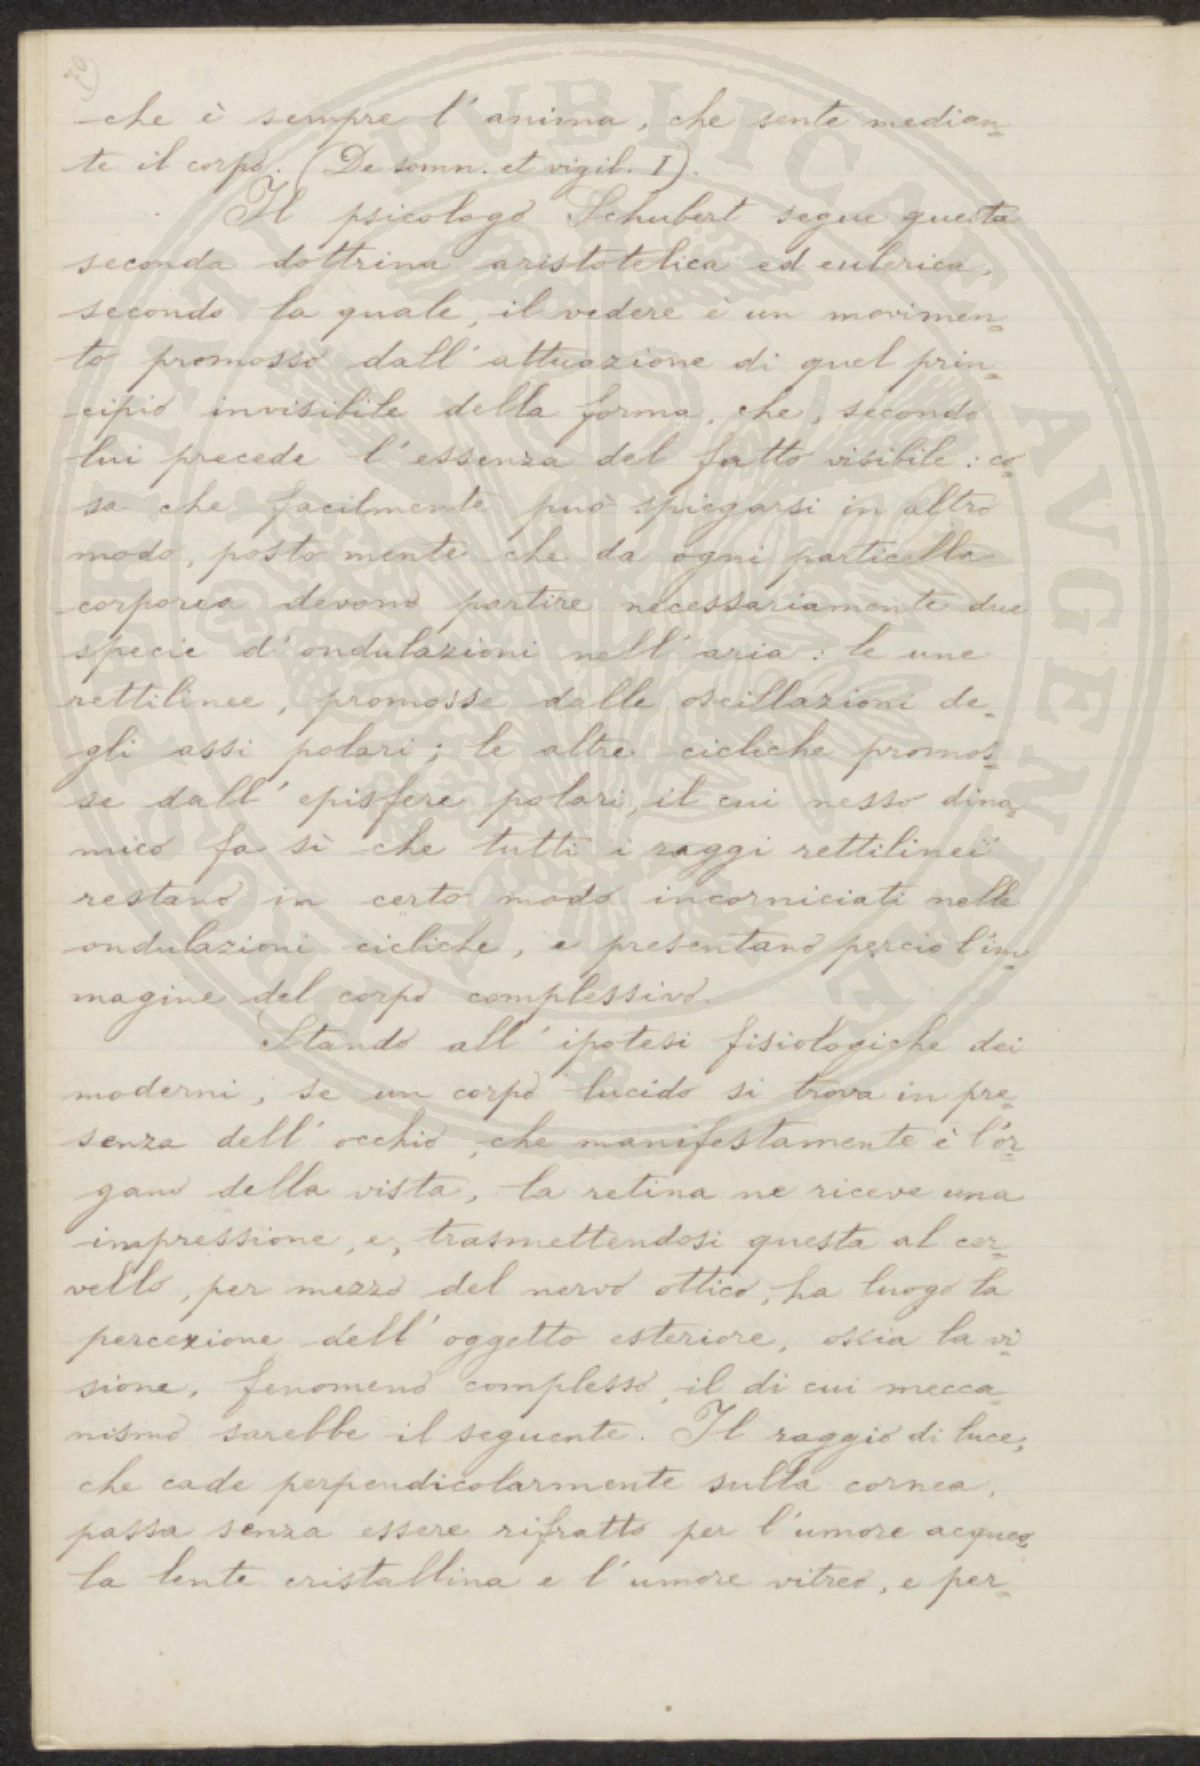 che è sempre l'anima, che sente median-
te il corpo. (De somn. et vigil. I).
Il psicologo Schubert segue questa
seconda dottrina aristotelica ed eulerica,
secondo la quale, il vedere è un movimen-
to promosso dall'attuazione di quel prin-
cipio invisibile della forma, che, secondo
lui precede l'essenza del fatto visibile: co-
sa che facilmente può spiegarsi in altro
modo, posto mente che da ogni particella
corporea devono partire necessariamente due
specie d'ondulazioni nell'aria: le une
rettilinee, promosse dalle oscillazioni de-
gli assi polari; le altre cicliche promos-
se dall'episfere polari, il cui nesso dina-
mico fa sì che tutti i raggi rettilinei
restano in certo modo incorniciati nelle
ondulazioni cicliche, e presentano perciò l'im-
magine del corpo complessivo.
Stando all'ipotesi fisiologiche dei
moderni, se un corpo lucido si trova in pre-
senza dell'occhio, che manifestamente è l'or-
gano della vista, la retina ne riceve una
impressione, e, trasmettendosi questa al cer-
vello, per mezzo del nervo ottico, ha luogo la
percezione dell'oggetto esteriore, ossia la vi-
sione, fenomeno complesso, il di cui mecca-
nismo sarebbe il seguente. Il raggio di luce,
che cade perpendicolarmente sulla cornea,
passa senza essere rifratto per l'umore acqueo,
la lente cristallina e l'umore vitreo, e per-